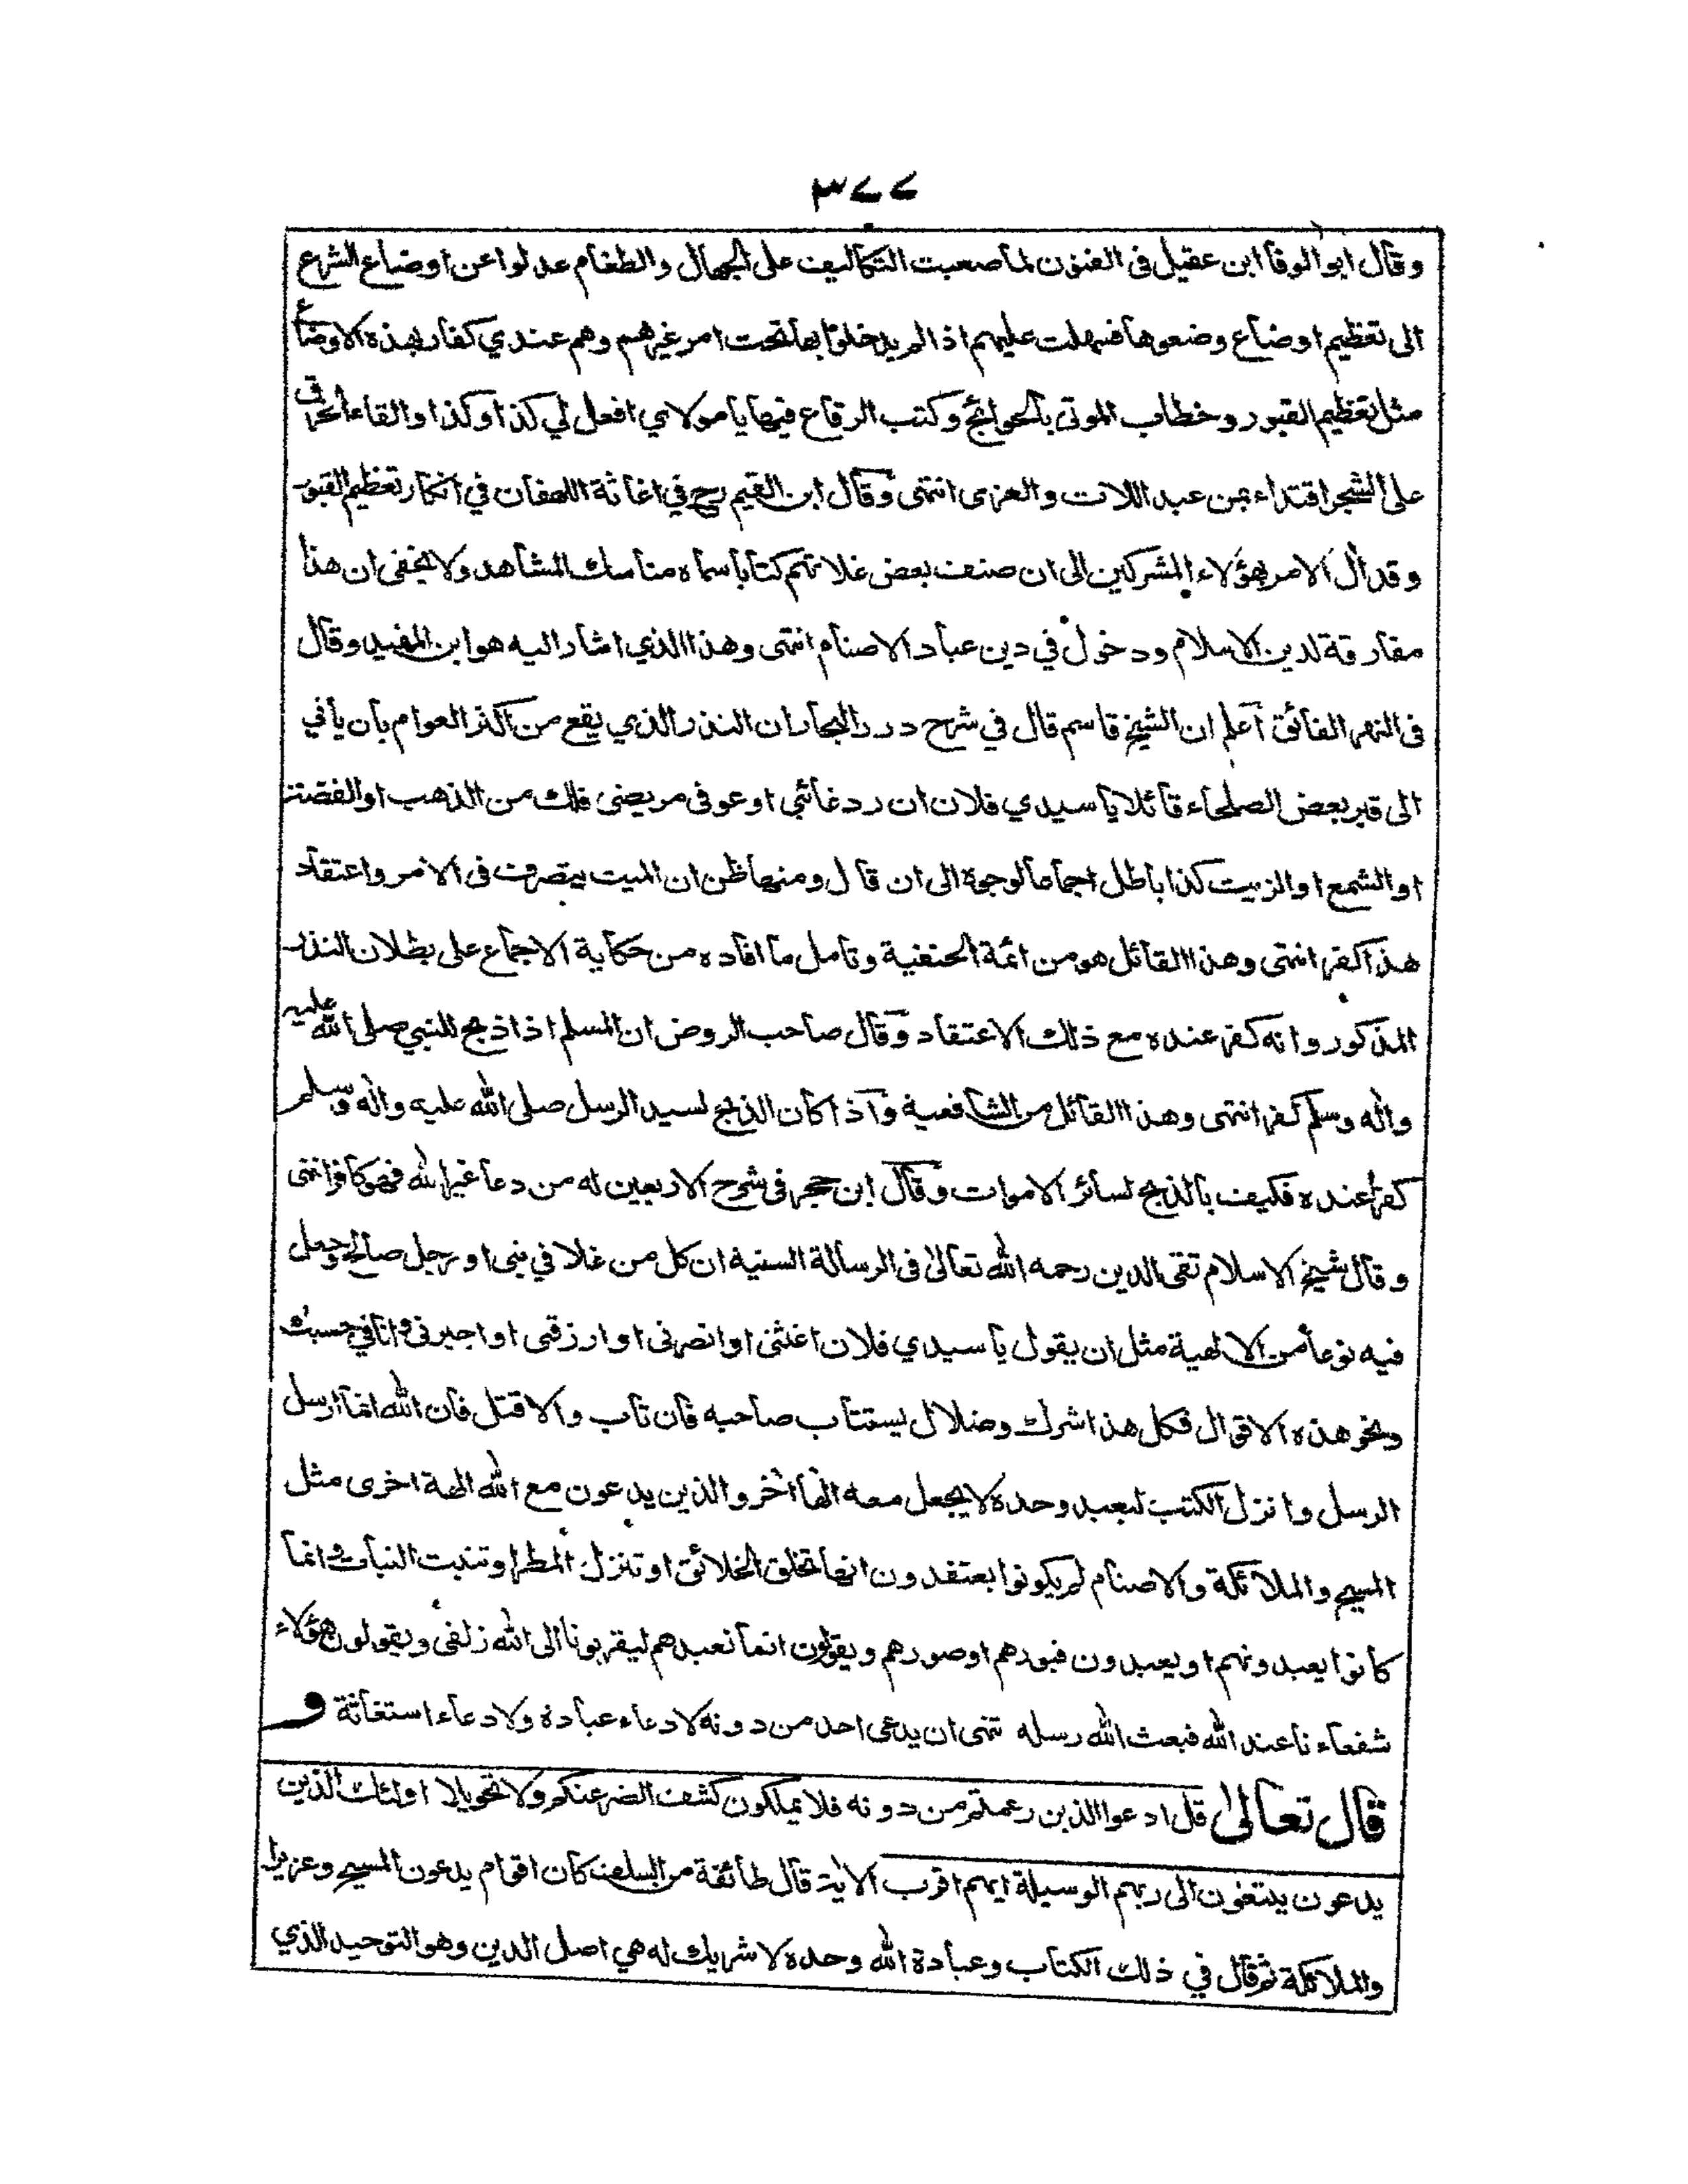 ٣٧٧
وقال ابو الوفا ابن عقيل فى الفنون لما صعبت التكاليف على الجهال والطغام عدلوا عن اوضاع الشرع
الى تعظيم اوضاع وضعوها فسهلت عليهم اذا لم يدخلوا بها تحت امر غيرهم وهم عندي كفار بهذه الاوضاع
مثل تعظيم القبور وخطاب الموتى بالحوائج وكتب الرقاع فيها يا مولاي افعل لي كذا وكذا والقاء الخرق
على الشجر اقتداء بمن عبد اللات والعزى انتهى وقال ابن القيم رح في اغاثة اللهفان في انكار تعظيم القبور
وقد آل الامر بهؤلاء المشركين الى ان صنف بعض غلاتهم كتابا سماه مناسك المشاهد ولا يخفى ان هذا
مفارقة لدين الاسلام ودخول في دين عباد الاصنام انتهى وهذا الذي اشار اليه هو ابن المفيد وقال
فى النهر الفائق اعلم ان الشيخ قاسم قال في شرح درر البحار ان النذر الذي يقع من اكثر العوام بان يأتي
الى قبر بعض الصلحاء قائلا يا سيدي فلان ان رد غائبي او عوفى مريضى فلك من الذهب او الفضة
او الشمع او الزيت كذا باطل اجماعا لوجوه الى ان قال ومنها ظن ان الميت يتصرف فى الامر واعتقاد
هذا كفر انتهى وهذا القائل هو من ائمة الحنفية وتامل ما افاده من حكاية الاجماع على بطلان النذر
المذكور وانه كفر عنده مع ذلك الاعتقاد وقال صاحب الروض ان المسلم اذا ذبح للنبي صلى الله عليه
واله وسلم كفر انتهى وهذا القائل من الشافعية واذا كان الذبح لسيد الرسل صلى الله عليه واله وسلم
كفرا عنده فكيف بالذبح لسائر الاموات وقال ابن حجر فى شرح الاربعين له من دعا غير الله فهو كافر انتهى
وقال شيخ الاسلام تقى الدين رحمه الله تعالى فى الرسالة السنية ان كل من غلا في نبى او رجل صالح وجعل
فيه نوعا من الالهية مثل ان يقول يا سيدي فلان اغثنى او انصرنى او ارزقنى او اجبرنى وانا في حسبك
ونحو هذه الاقوال فكل هذا شرك وضلال يستتاب صاحبه فان تاب والا قتل فان الله انما ارسل
الرسل وانزل الكتب ليعبد وحده لا يجعل معه الها آخر والذين يدعون مع الله الهة اخرى مثل
المسيح والملائكة والاصنام لم يكونوا يعتقدون انها تخلق الخلائق او تنزل المطر او تنبت النبات وانما
كانوا يعبدونهم او يعبدون قبورهم او صورهم ويقولون انما نعبدهم ليقربونا الى الله زلفى ويقولون هؤلاء
شفعاءنا عند الله فبعث الله رسله تنهى ان يدعى احد من دونه لا دعاء عبادة ولا دعاء استغاثة و
قال تعالى قل ادعوا الذين زعمتم من دونه فلا يملكون كشف الضر عنكم ولا تحويلا اولئك الذين
يدعون يبتغون الى ربهم الوسيلة ايهم اقرب الاية قال طائفة من السلف كان اقوام يدعون المسيح وعزيرا
والملائكة ثم قال في ذلك الكتاب وعبادة الله وحده لا شريك له هي اصل الدين وهو التوحيد الذي